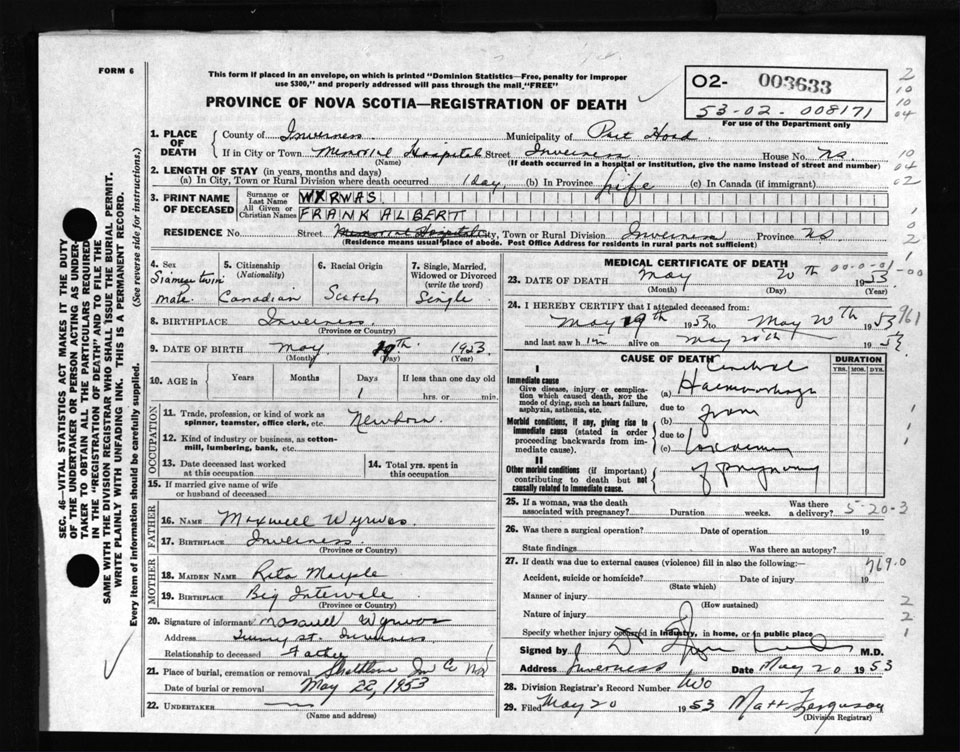 FORM 6
This form if placed in an envelope, on which is printed "Dominion Statistics—Free, penalty for improper
use $300," and properly addressed will pass through the mail "FREE"
02- 003633
53-02-008171
For use of the Department only
PROVINCE OF NOVA SCOTIA—REGISTRATION OF DEATH
1. PLACE OF DEATH County of Inverness Municipality of Port Hood
If in City or Town Memorial Hospital Street Inverness House No. NS
(Name) (If death occurred in a hospital or institution, give the name instead of street and number)
2. LENGTH OF STAY (in years, months and days)
(a) In City, Town or Rural Division where death occurred 1 day (b) In Province Life (c) In Canada (if immigrant)
3. PRINT NAME OF DECEASED Surname or Last Name WYRWAS
All Given or Christian Names FRANK ALBERT
RESIDENCE No. Street Memorial Hospital City, Town or Rural Division Inverness Province NS
(Residence means usual place of abode. Post Office Address for residents in rural parts not sufficient)
4. Sex Siamese twin Male
5. Citizenship (Nationality) Canadian
6. Racial Origin Scotch
7. Single, Married, Widowed or Divorced (write the word) Single
8. BIRTHPLACE Inverness
(Province or Country)
9. DATE OF BIRTH May 19th 1953
(Month) (Day) (Year)
10. AGE in Years Months Days 1 If less than one day old
hrs. or min.
OCCUPATION
11. Trade, profession, or kind of work as spinner, teamster, office clerk, etc. Newborn
12. Kind of industry or business, as cotton-mill, lumbering, bank, etc.
13. Date deceased last worked at this occupation
14. Total yrs. spent in this occupation
15. If married give name of wife or husband of deceased
FATHER
16. NAME Maxwell Wyrwas
17. BIRTHPLACE Inverness
(Province or Country)
MOTHER
18. MAIDEN NAME Rita
19. BIRTHPLACE Big Intervale
(Province or Country)
20. Signature of informant Maxwell Wyrwas
Address St. Inverness
Relationship to deceased Father
21. Place of burial, cremation or removal
Date of burial or removal May 22, 1953
22. UNDERTAKER
(Name and address)
MEDICAL CERTIFICATE OF DEATH
23. DATE OF DEATH May 20th 1953
(Month) (Day) (Year)
24. I HEREBY CERTIFY that I attended deceased from:
May 19th 1953 to May 20th 1953
and last saw him alive on May 20th 1953
CAUSE OF DEATH
DURATION
YRS. MOS. DYS.
I
Immediate cause
Give disease, injury or complication which caused death, NOT the mode of dying, such as heart failure, asphyxia, asthenia, etc.
(a) Cerebral Haemorrhage
due to
Morbid conditions, if any, giving rise to immediate cause (stated in order proceeding backwards from immediate cause)
(b) from
due to
(c)
II
Other morbid conditions (if important) contributing to death but not causally related to immediate cause.
of pregnancy
25. If a woman, was the death associated with pregnancy? Duration weeks. Was there a delivery? 5-20-3
26. Was there a surgical operation? Date of operation 19
State findings Was there an autopsy?
27. If death was due to external causes (violence) fill in also the following:— 769.0
Accident, suicide or homicide? Date of injury 19
(State which)
Manner of injury
(How sustained)
Nature of injury
Specify whether injury occurred in industry, in home, or in public place
Signed by M.D.
Address Inverness Date May 20 1953
28. Division Registrar's Record Number two
29. Filed May 20 1953 Matt Ferguson
(Division Registrar)
SEC. 46—VITAL STATISTICS ACT MAKES IT THE DUTY
OF THE UNDERTAKER OR PERSON ACTING AS UNDERTAKER
TO OBTAIN ALL THE PARTICULARS REQUIRED
IN THE "REGISTRATION OF DEATH" AND TO FILE THE
SAME WITH THE DIVISION REGISTRAR WHO SHALL ISSUE THE BURIAL PERMIT.
WRITE PLAINLY WITH UNFADING INK. THIS IS A PERMANENT RECORD.
Every item of information should be carefully supplied. (See reverse side for instructions.)